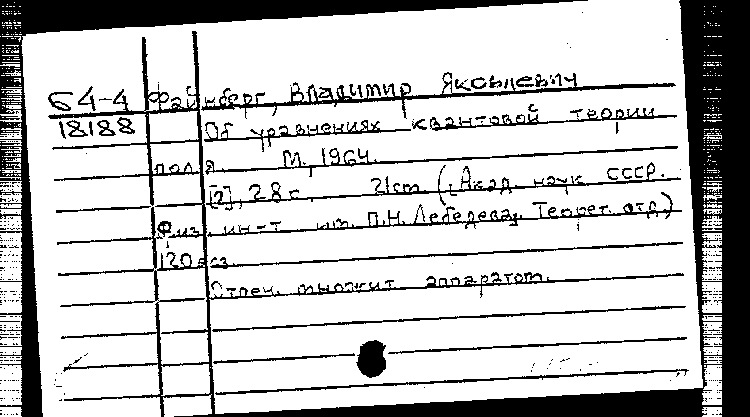 64-4 Файнберг, Владимир Яковлевич
18188 Об уравнениях квантовой теории
поля. М., 1964.
[2], 28 с. 21 cm. (Акад. наук СССР.
Физ. ин-т им. П.Н. Лебедева. Теорет. отд.)
120 экз.
Отпеч. множит. аппаратом.